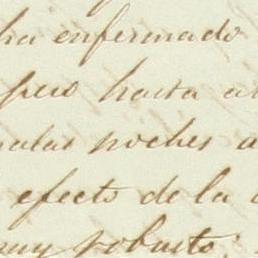 ha enfermado
pero hasta a
malas noches a
efecto de la
muy robusto;